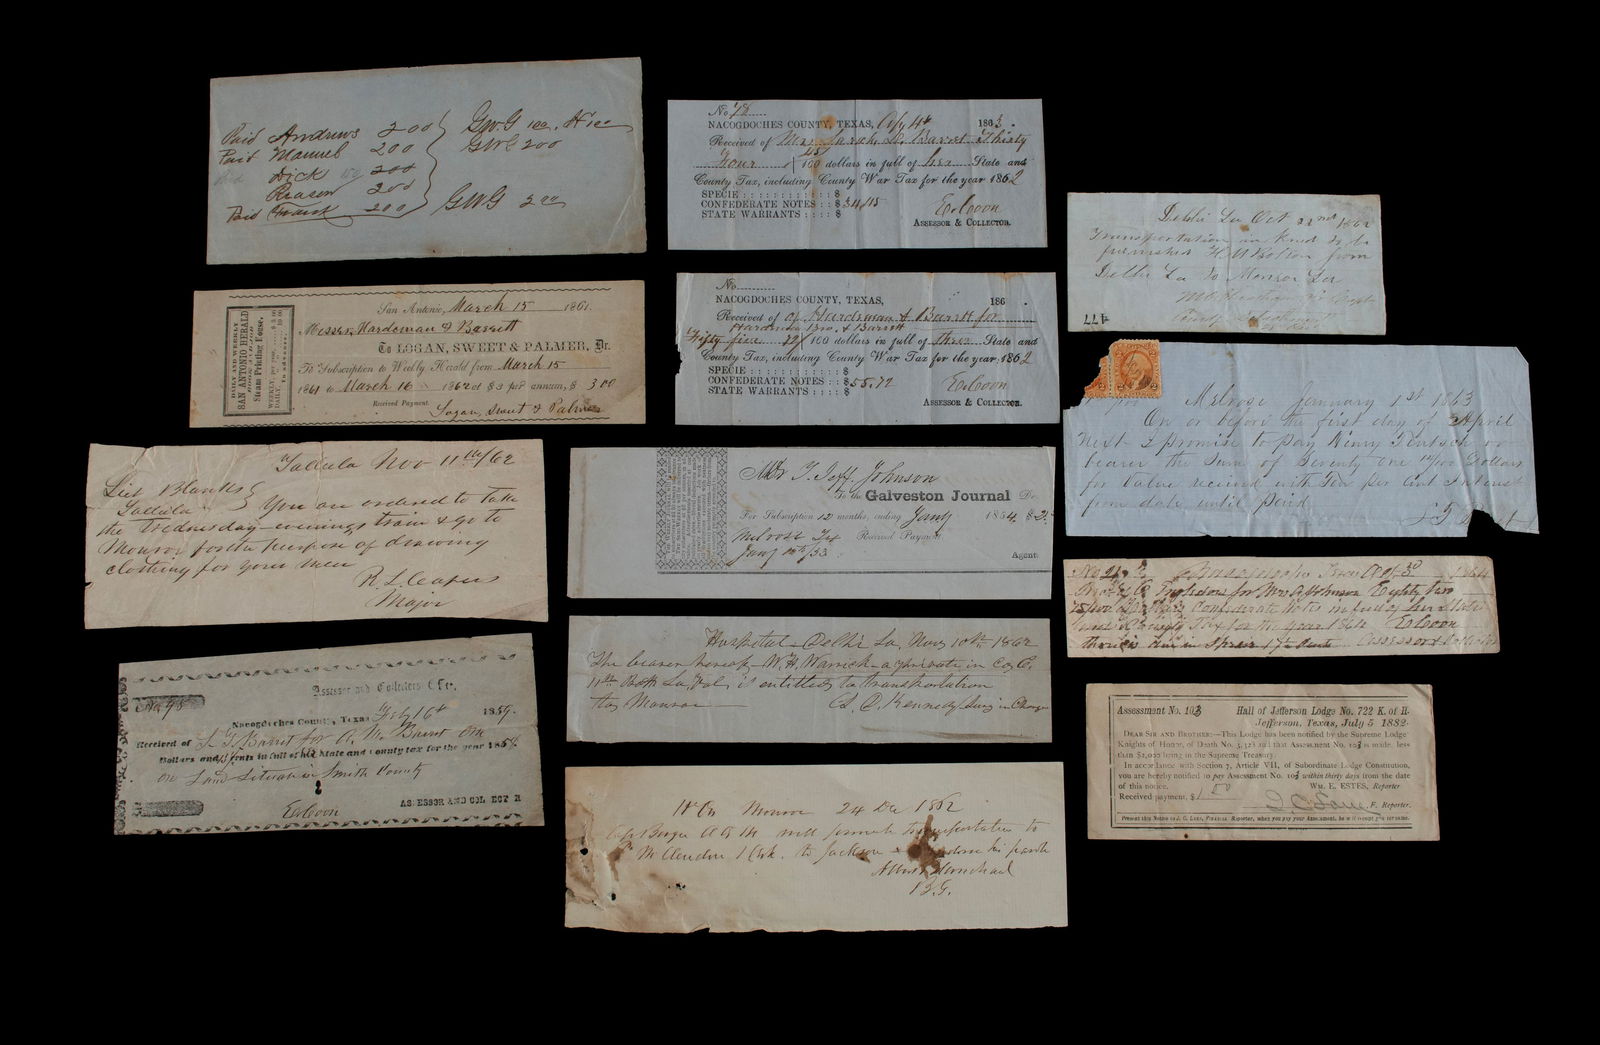 Paid Andrews 200
Paid Manuel 200
Dick 200
Reason 200
Paid Frank 200
GWG 100.
GWG 200
GWG 200
DAILY AND WEEKLY
SAN ANTONIO HERALD
BOOK AND JOB
Steam Printing House.
WEEKLY, per year, $3 00
DAILY, 10 00
In advance.
San Antonio, March 15 1861.
Messrs Hardeman & Barrett
To LOGAN, SWEET & PALMER, Dr.
To Subscription to Weekly Herald from March 15
1861 to March 16 1862 at $3 per annum, $ 3 00
Received Payment.
Logan, Sweet & Palmer
Tallula Nov 11th/62
Liet Blanks
Tallula
You are ordered to take
the Wednesday evenings train & go to
Monroe for the purpose of drawing
clothing for your men
R. L. Capers
Major
Assessor and Collectors Office.
No 98
Nacogdoches County, Texas Feby 16th 1859.
Received of L. F. Barret for A. M. Barret One
Dollars and 15 cents in full of his State and County tax for the year 1858
on Land Situation in Smith County
ASSESSOR AND COLLECTOR
No 78
NACOGDOCHES COUNTY, TEXAS, Apl 4th 1863.
Received of Mrs. Sarah Barret Thirty
four 15/100 dollars in full of her State and
County Tax, including County War Tax for the year 1862
SPECIE : : : : : : : : : : $
CONFEDERATE NOTES : : $34/15
STATE WARRANTS : : : : $
ASSESSOR & COLLECTOR.
No
NACOGDOCHES COUNTY, TEXAS, 186 .
Received of of Hardeman & Barrett for
Hardeman Bro. & Barrett
Fifty five 72/100 dollars in full of their State and
County Tax, including County War Tax for the year 1862
SPECIE : : : : : : : : : : $
CONFEDERATE NOTES : : $55.72
STATE WARRANTS : : : : $
ASSESSOR & COLLECTOR.
Mr T. Jeff. Johnson
To the Galveston Journal Dr.
For Subscription 12 months, ending Jany 1854, $2
Melrose Tx Received Payment
Jany 10th/53
Agent.
Hospital Delhi La, Nov 10th 1862
The bearer hereof W. H. Warrick a private in Co. C.
11th Batt La Vol, is entitled to transportation
to Monroe
Kennedy Surg in Charge
Hd Qrs Monroe 24 Dec 1862
Capt will furnish transportation to
McClendon 1 Clk. to Jackson
Albert Blanchard
B.G.
Delhi La Oct 22nd 1862
Transportation in kind to be
furnished H. M. Bolton from
Delhi La to Monroe La
177
Melrose January 1st 1863
On or before the first day of April
Next I promise to pay Henry or
bearer the Sum of Seventy One 14/100 Dollars
for Value received with Ten per Cent Interest
from date until paid
1864
for Mrs A Johnson Eighty two
Confederate Notes in full of her State
and County Tax for the year 1864
Assessor & Collector
Assessment No. 103
Hall of Jefferson Lodge No. 722 K. of H.
Jefferson, Texas, July 5 1882.
DEAR SIR AND BROTHER:—This Lodge has been notified by the Supreme Lodge
Knights of Honor, of Death No. 3,328 and that Assessment No. 103 is made, less
than $2,000 being in the Supreme Treasury.
In accordance with Section 7, Article VII, of Subordinate Lodge Constitution,
you are hereby notified to pay Assessment No. 103 within thirty days from the date
of this notice. WM. E. ESTES, Reporter
Received payment, $1 00
F. Reporter.
Present this Notice to J. C. LANE, Financial Reporter, when you pay your Assessment, he will receipt you for same.